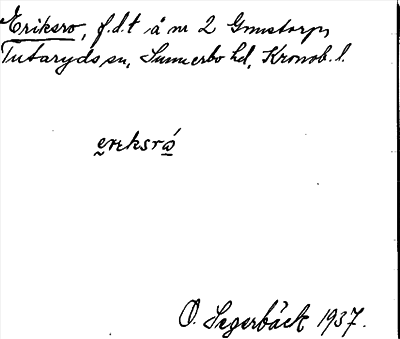 Eriksro, f.d.t å nr 2 Gunstorp,
Tutaryds sn, Sunnerbo hd, Kronob. l.
O. Segerbäck 1937.